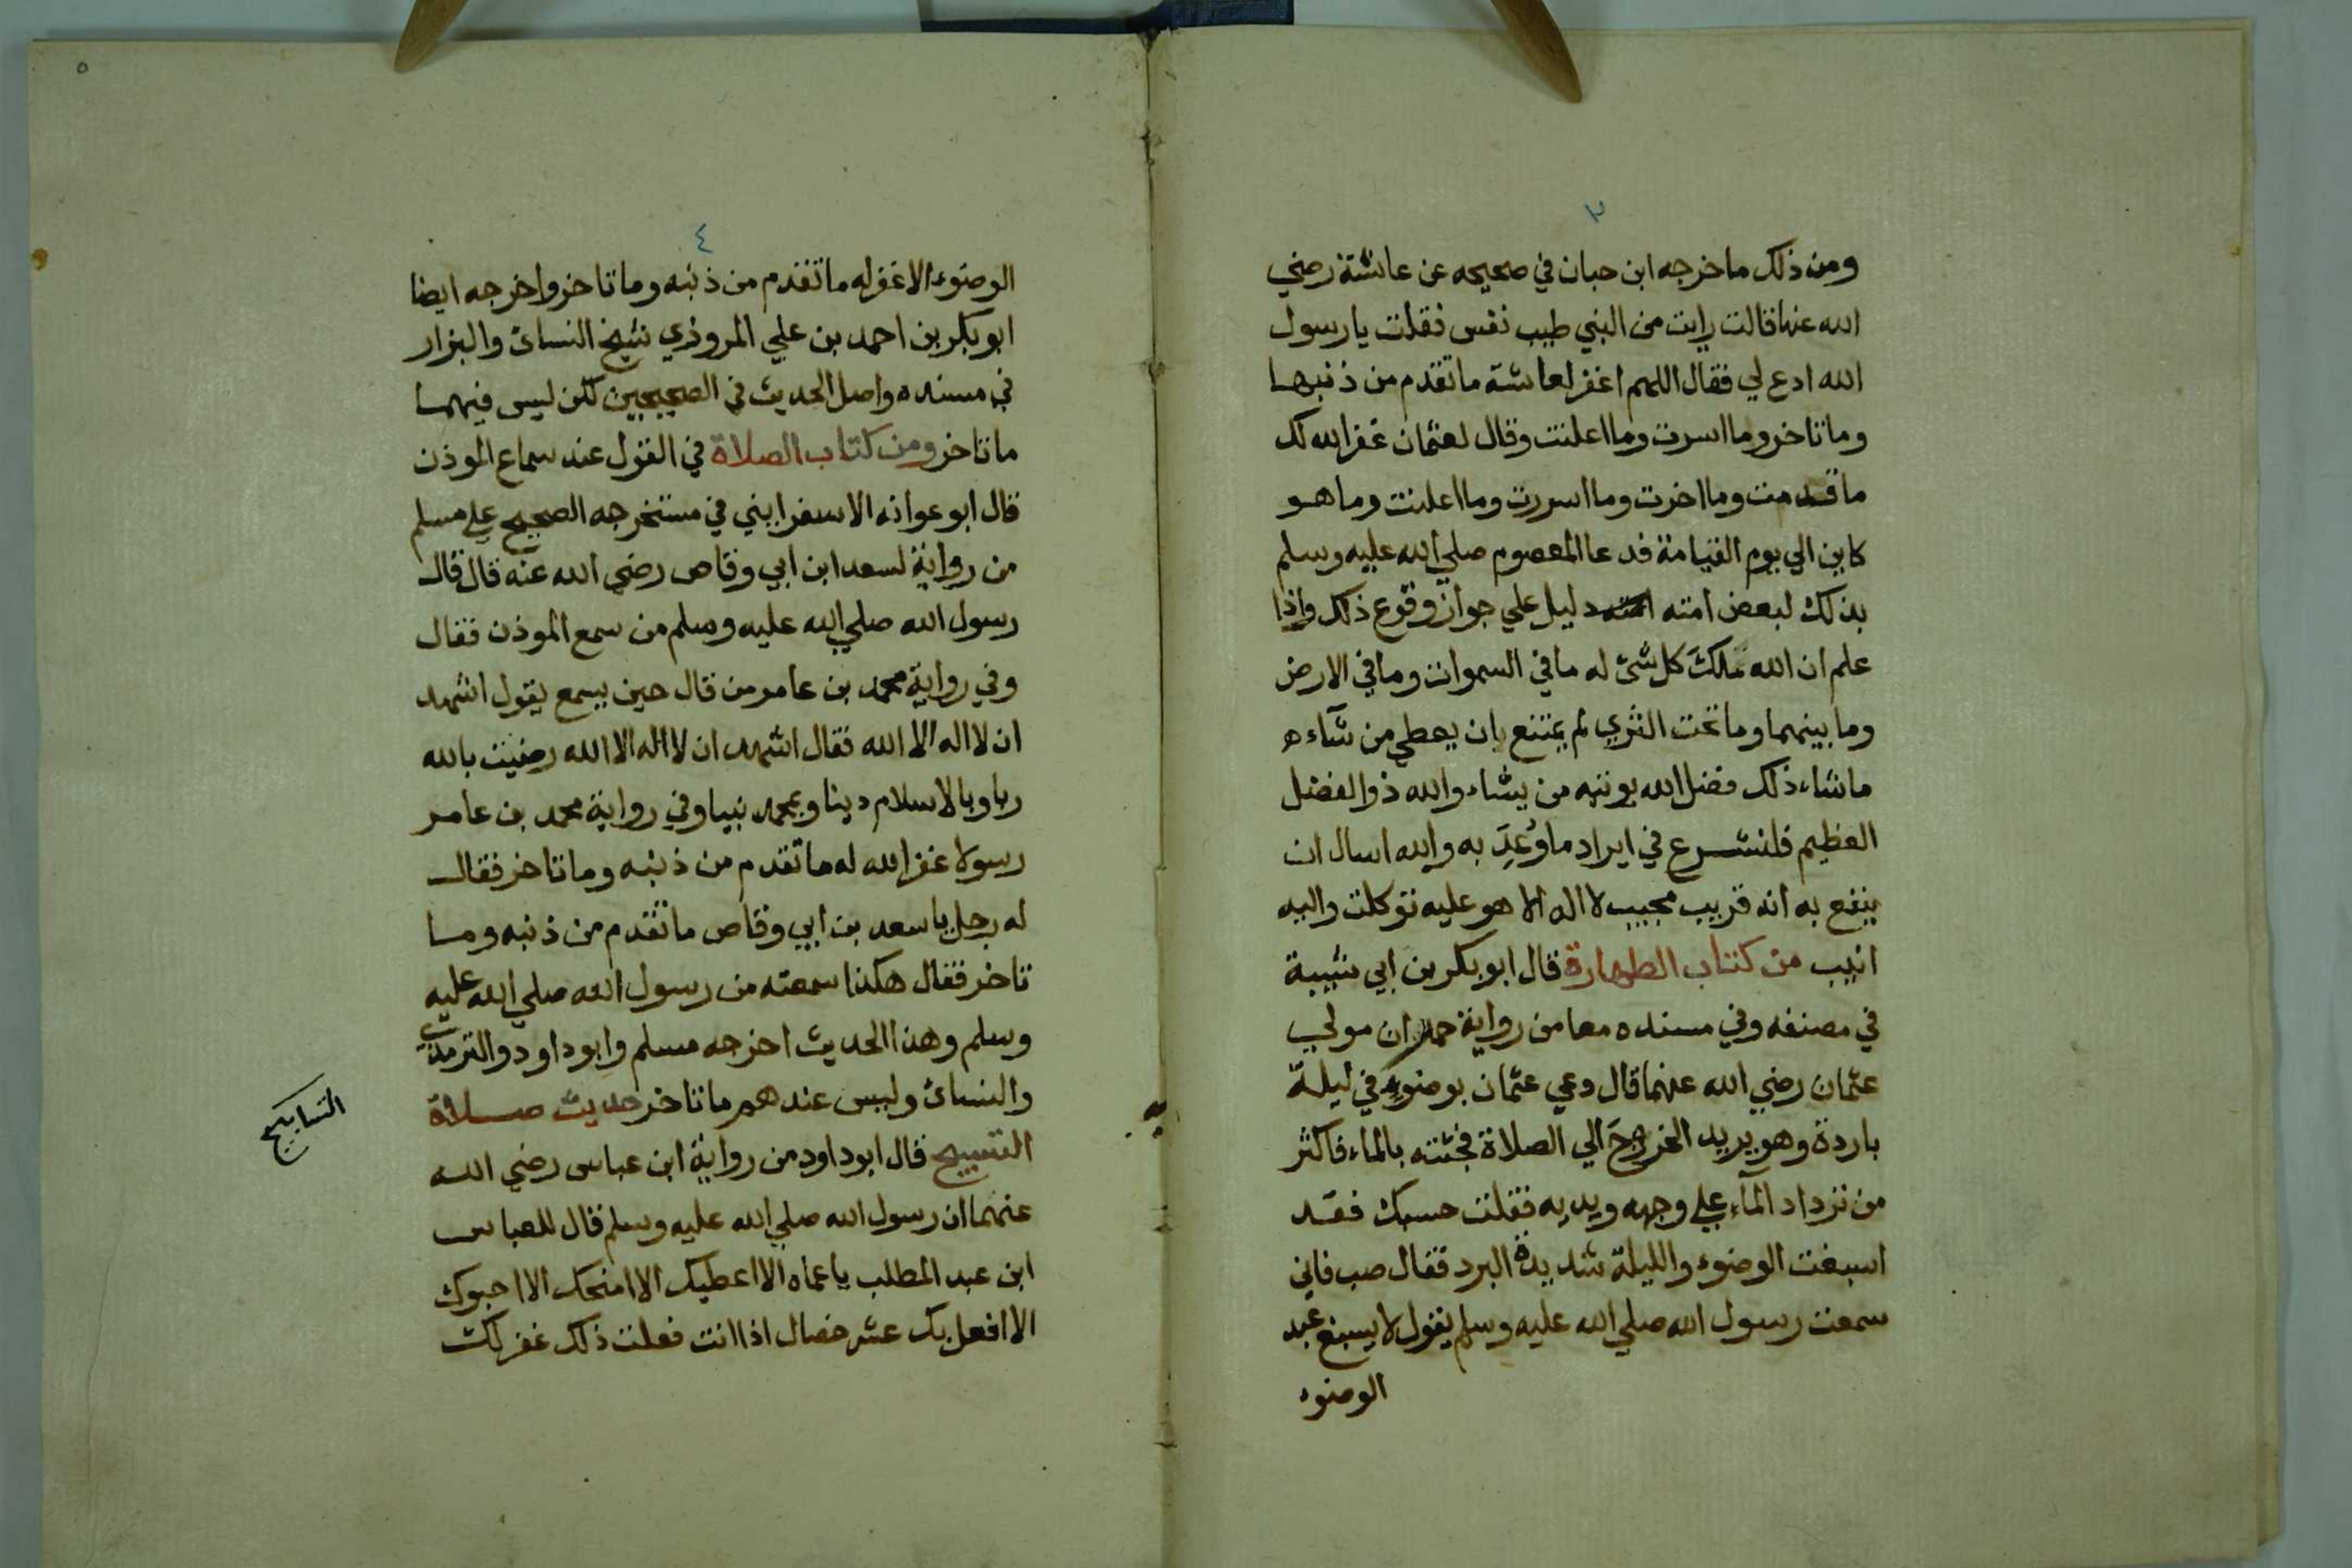 ٣
ومن ذلك ما خرجه ابن حبان في صحيحه عن عائشة رضي
الله عنها قالت رايت من النبي طيب نفس فقلت يا رسول
الله ادع لي فقال اللهم اغفر لعائشة ما تقدم من ذنبها
وما تاخر وما اسرت وما اعلنت وقال لعثمان غفر الله لك
ما قدمت وما اخرت وما اسررت وما اعلنت وما هو
كاين الي يوم القيامة فدعا المعصوم صلي الله عليه وسلم
بذلك لبعض امته دليل علي جواز وقوع ذلك واذا
علم ان الله ملك كل شئ له ما في السموات وما في الارض
وما بينهما وما تحت الثري لم يمتنع بان يعطي من شآءه
ما شاء ذلك فضل الله يوتيه من يشاء والله ذو الفضل
العظيم فلنشرع في ايراد ما وُعِدَ به والله اسال ان
ينفع به انه قريب مجيب لا اله الا هو عليه توكلت واليه
انيب من كتاب الطهارة قال ابو بكر بن ابي شيبة
في مصنفه وفي مسنده معا من رواية حمران مولي
عثمان رضي الله عنهما قال دعي عثمان بوضوءٍ في ليلة
باردة وهو يريد الخروجَ الي الصلاة فجئته بالماء فاكثر
من تزداد المآء علي وجهه ويديه فقلت حسبك فقد
اسبغت الوضوء والليلة شديدة البرد فقال صب فاني
سمعت رسول الله صلي الله عليه وسلم يقول لا يسبغ عبد
الوضوء
٥
٤
الوضوء الا غفر له ما تقدم من ذنبه وما تاخر واخرجه ايضا
ابو بكر بن احمد بن علي المروذي شيخ النسائ والبزار
في مسنده واصل الحديث في الصحيحين لكن ليس فيهما
ما تاخر ومن كتاب الصلاة في القول عند سماع الموذن
قال ابو عوانه الاسفرايني في مستخرجه الصحيح علي مسلم
من رواية لسعد ابن ابي وقاص رضي الله عنه قال قال
رسول الله صلي الله عليه وسلم من سمع الموذن فقال
وفي رواية محمد بن عامر من قال حين يسمع يقول اشهد
ان لا اله الا الله فقال اشهد ان لا اله الا الله رضيت بالله
ربا وبالاسلام دينا وبمحمد نبيا وفي رواية محمد بن عامر
رسولا غفر الله له ما تقدم من ذنبه وما تاخر فقال
له رجل يا سعد بن ابي وقاص ما تقدم من ذنبه وما
تاخر فقال هكذا سمعته من رسول الله صلي الله عليه
وسلم وهذا الحديث اخرجه مسلم وابو داود والترمذي
والنسائ وليس عندهم ما تاخر حديث صلاة
التسبيح قال ابو داود من رواية ابن عباس رضي الله
عنهما ان رسول الله صلي الله عليه وسلم قال للعباس
ابن عبد المطلب يا عماه الا اعطيك الا امنحك الا احبوك
الا افعل بك عشر خصال اذا انت فعلت ذلك غفر لك
التسابيح